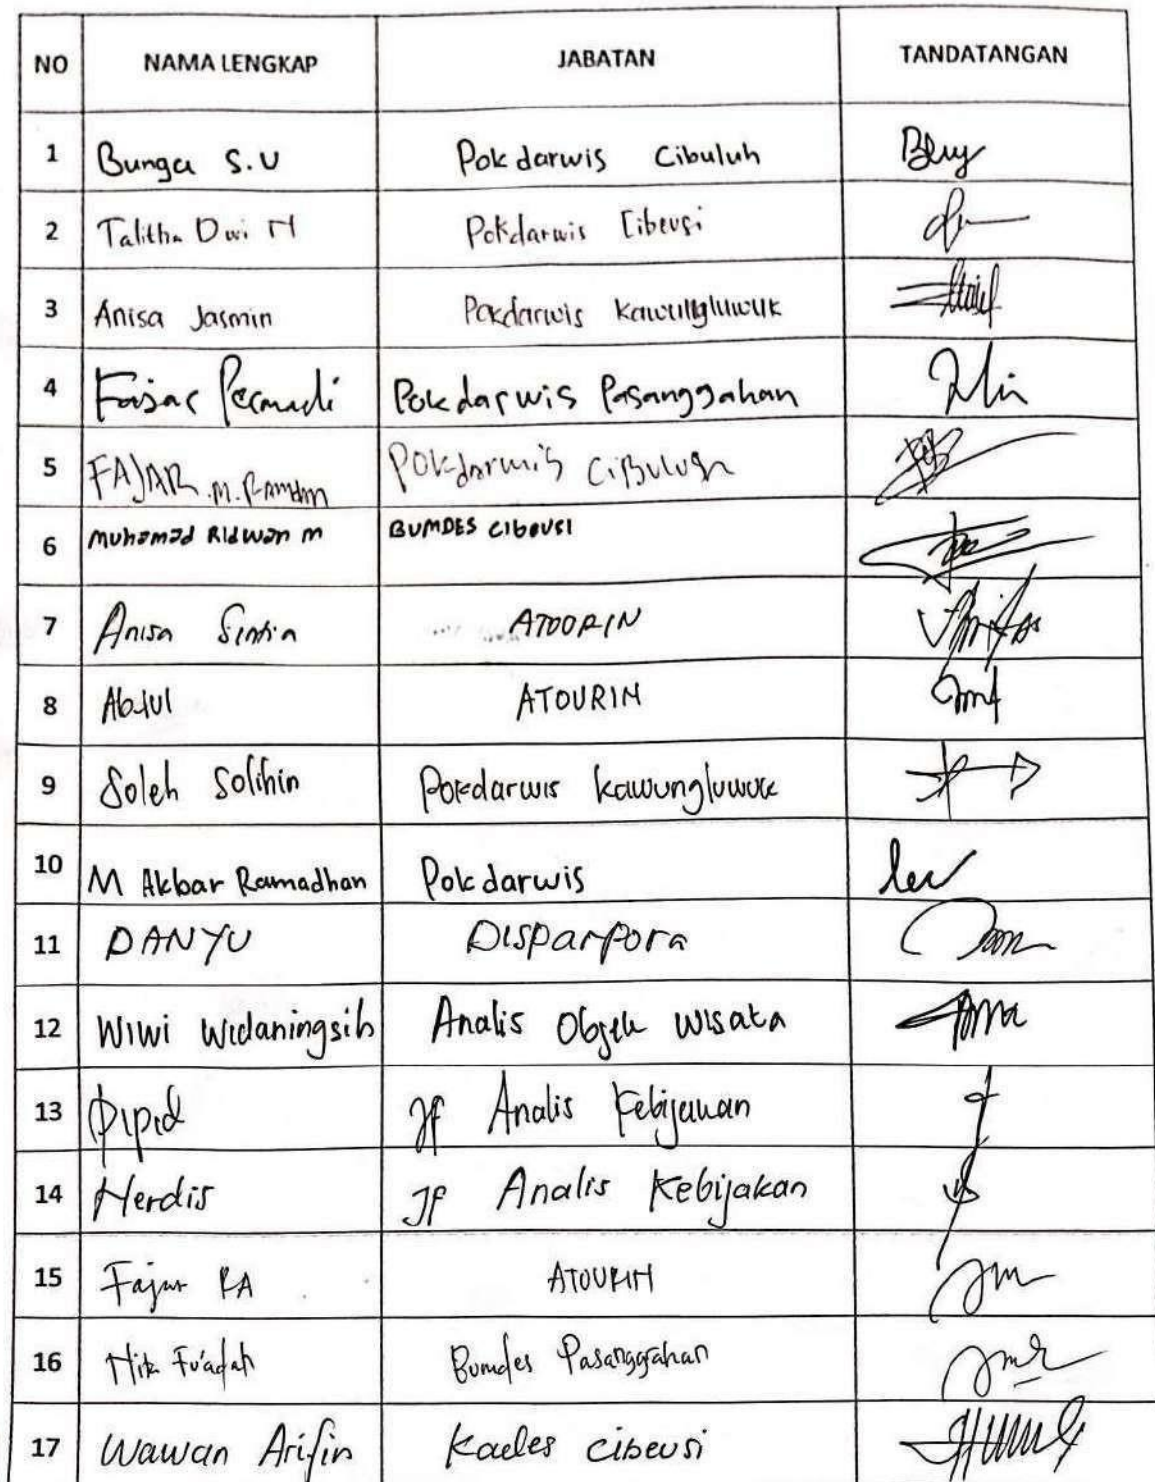 NO NAMA LENGKAP JABATAN TANDATANGAN
1 Bunga S.U Pokdarwis Cibuluh
2 Talitha Dwi M Pokdarwis Cibeusi
3 Anisa Jasmin Pokdarwis Kawungluwuk
4 Fajar Permadi Pokdarwis Pasanggahan
5 FAJAR .M. Ramdan Pokdarwis Cibuluh
6 Muhamad Ridwan M BUMDES CIBEUSI
7 Anisa Sintia ATOORIN
8 Abdul ATOURIN
9 Soleh Solihin Pokdarwis Kawungluwuk
10 M Akbar Ramadhan Pokdarwis
11 DANYU Disparpora
12 Wiwi Widaningsih Analis Objek Wisata
13 Pipid JF Analis Kebijakan
14 Herdis JF Analis Kebijakan
15 Fajar RA ATOURIN
16 Fu'adah Bumdes Pasanggrahan
17 Wawan Arifin Kades Cibeusi